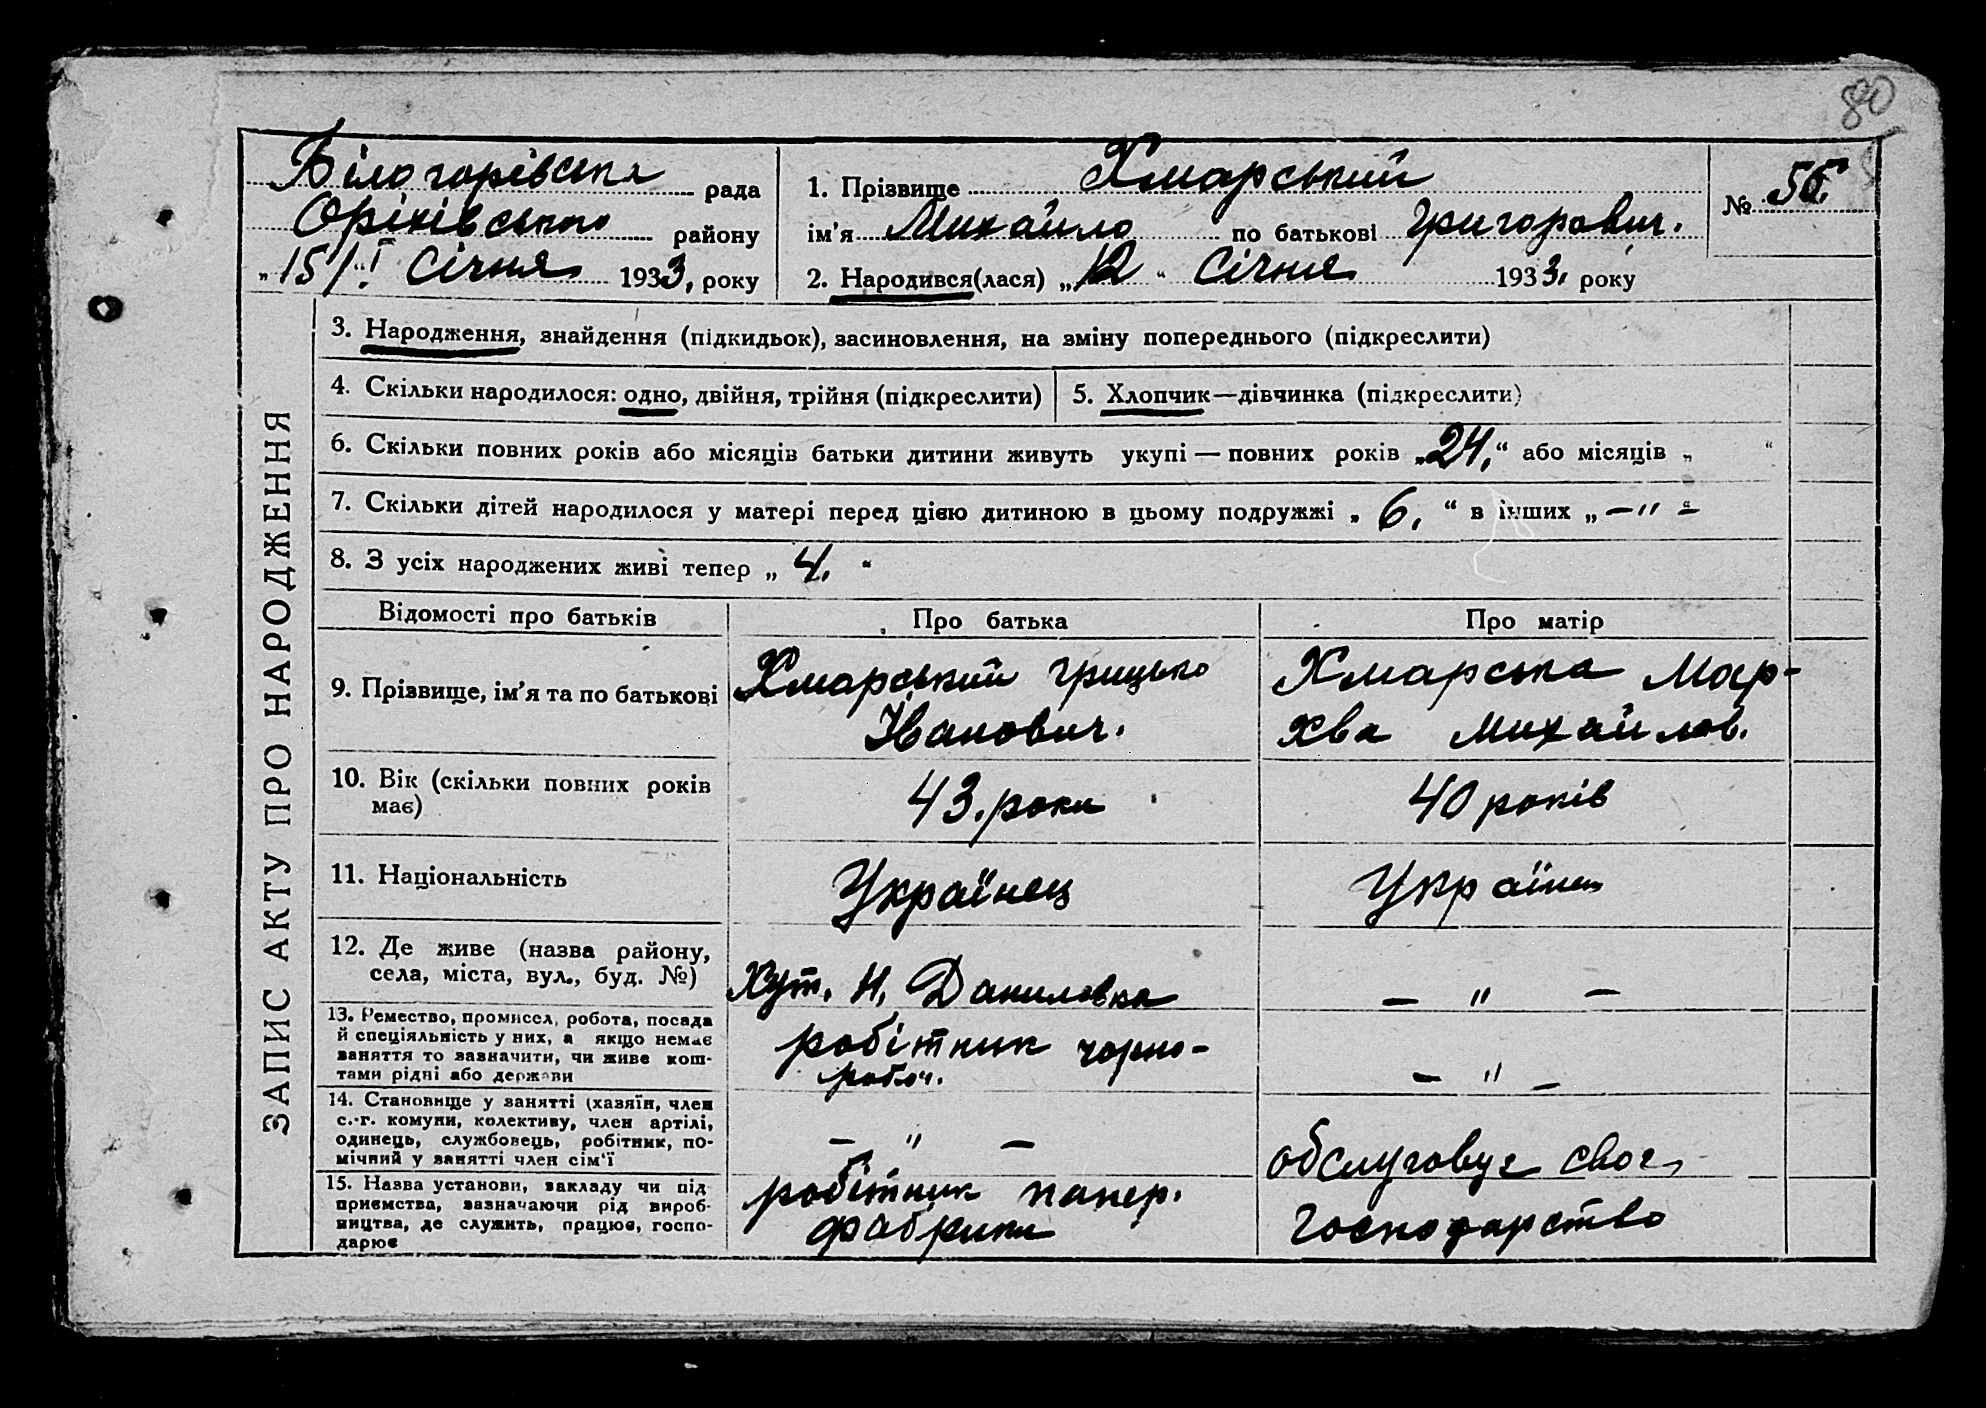 80
Білогорівська рада
Оріхівського району
„15/I Січня 1933, року
1. Прізвище Хмарський
ім'я Михайло по батькові Григорович.
2. Народився(лася) „12“ Січня 1933, року
№ 55.
ЗАПИС АКТУ ПРО НАРОДЖЕННЯ
3. Народження, знайдення (підкидьок), засиновлення, на зміну попереднього (підкреслити)
4. Скільки народилося: одно, двійня, трійня (підкреслити)
5. Хлопчик—дівчинка (підкреслити)
6. Скільки повних років або місяців батьки дитини живуть укупі — повних років „24,“ або місяців „ “
7. Скільки дітей народилося у матері перед цією дитиною в цьому подружжі „ 6, “ в інших „ —"— “
8. З усіх народжених живі тепер „ 4, “
Відомості про батьків
Про батька
Про матір
9. Прізвище, ім'я та по батькові
Хмарський Грицько
Іванович.
Хмарська Мар-
хва Михайлов.
10. Вік (скільки повних років
має)
43. роки
40 років
11. Національність
Українец
Українк
12. Де живе (назва району,
села, міста, вул., буд. №)
Хут. Н. Даниловка
— " —
13. Ремество, промисел, робота, посада
й спеціяльність у них, а якщо немає
заняття то зазначити, чи живе кош-
тами рідні або держави
робітник чорно-
робоч.
— " —
14. Становище у занятті (хазяїн, член
с.-г. комуни, колективу, член артілі,
одинець, службовець, робітник, по-
мічний у занятті член сім'ї
— " —
обслуговує своє
господарство
15. Назва установи, закладу чи під-
приємства, зазначаючи рід вироб-
ництва, де служить, працює, госпо-
дарює
робітник папер.
фабрики